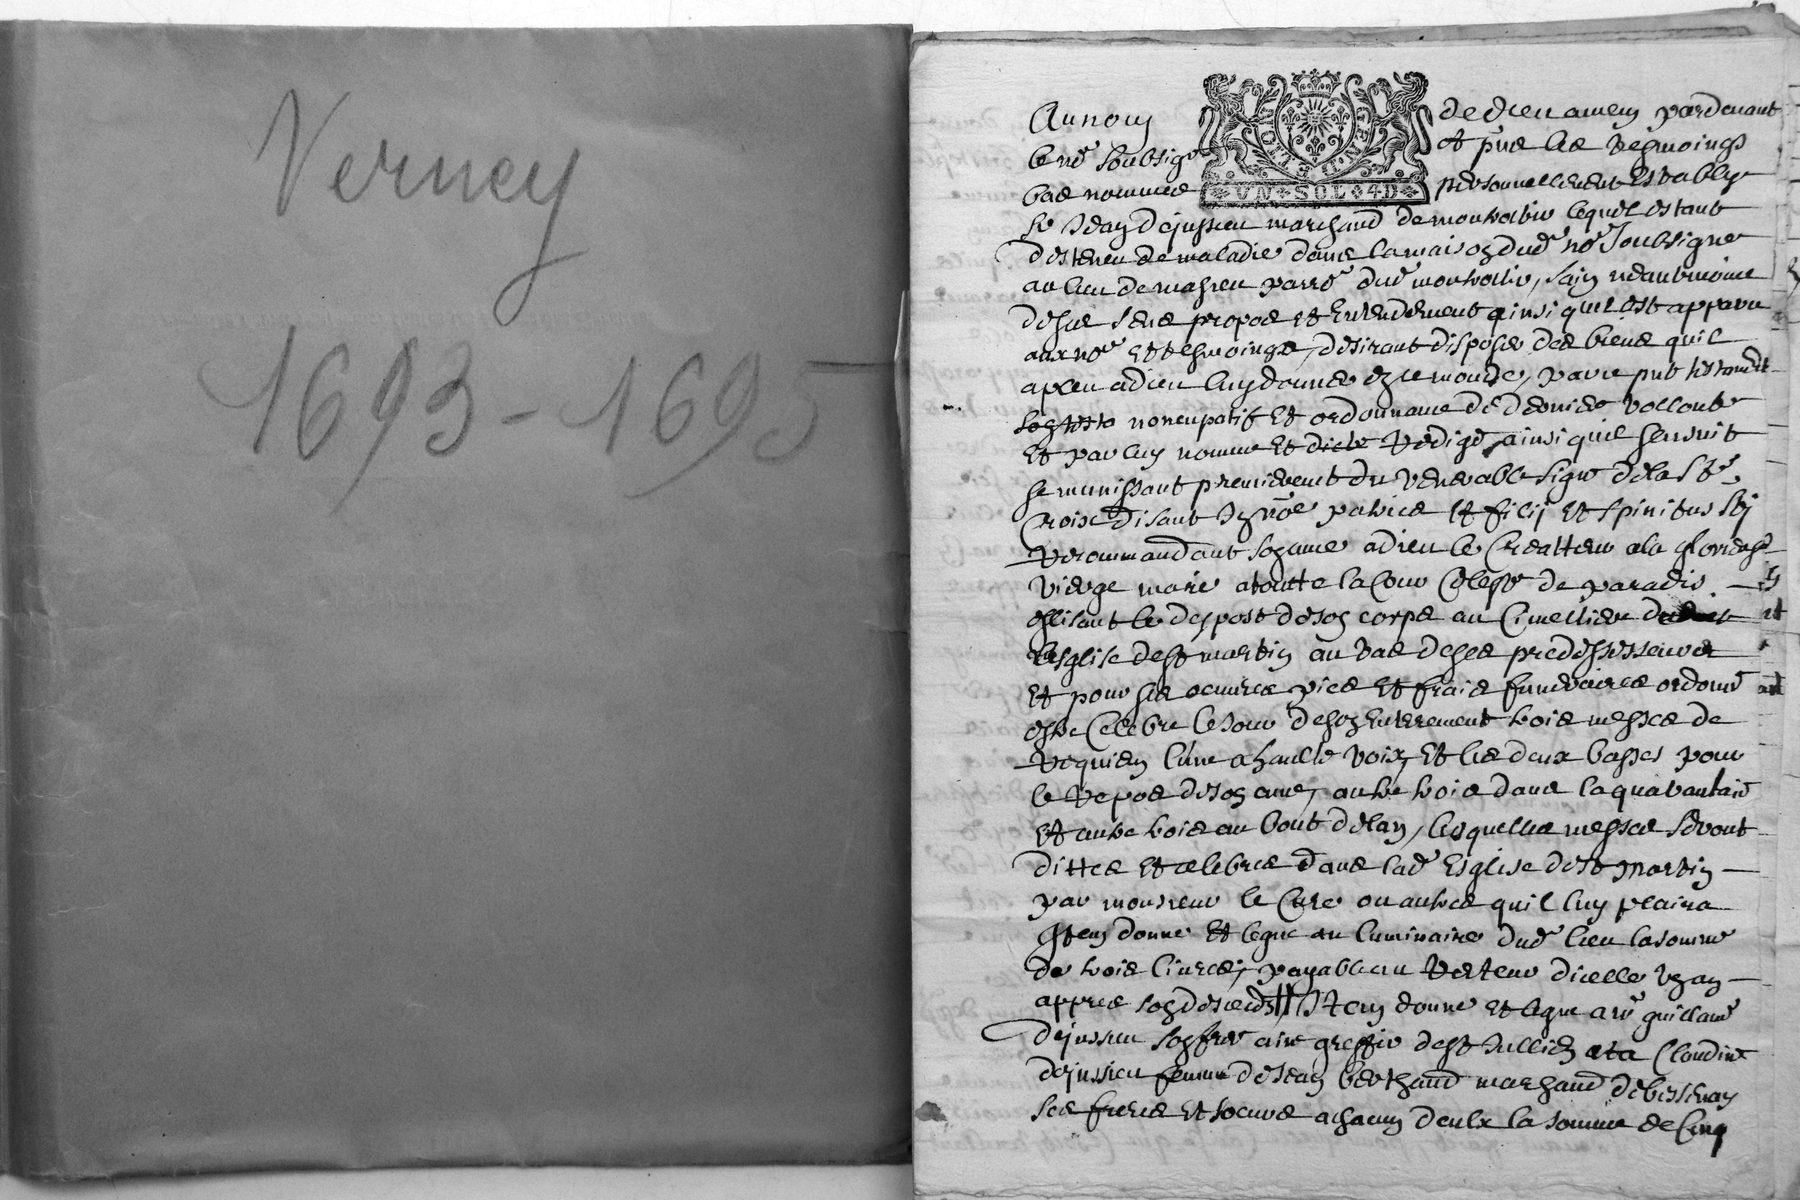 Verney
1693-1695
Au nom de dieu amen pardevant
le nore soubsigné et pnts les tesmoings
bas nommes personnellement estably
Sr Jean Dejussieu marchand de montrottier lequel estant
destenu de maladie dans la maison dud nore soubsigne
au lieu de parre dud montrottier, sain neantmoins
de ses sens propos et entendement ainsi quil est apparu
aux nore et tesmoings, desirant disposer des biens quil
a pleu a dieu luy donner en ce monde, par ce pnt testament
noncupatif et ordonnance de derniere vollonte
et par luy nomme et dicte redigé ainsi quil sensuit
se munissant premierement du venerable signe de la Ste
Croix disant In noe patris et filij et spiritus sti
recommandant son ame a dieu le Createur a la glorieuse
vierge marie a toutte la Cour Celeste de paradis
eslisant le depost de son corps au Cimettiere
lesglise de st martin au vas de ses predessesseurs
et pour ses oeuvres pies et frais funeraires ordonne
estre Celebre le jour de son enterrement trois messes de
requiem lune a haulte voix, et les deux basses pour
le repos de son ame, autre trois dans la quarantaine
et autre trois au bout de lan, lesquelles messes seront
dittes et celebres dans lad Esglise de st martin
par monsieur le Cure ou autres quil luy plaira
Item donne et legue au luminaire dud lieu la somme
de trois livres, payable au recteur dicelle un an
appres son deseds // Item donne et legue a me guillaume
dejussieu son frere greffier de st Jullien et a Claudine
dejussieu femme de Jean berthaud marchand de bessenay
ses freres et soeurs a chacun deulx la somme de Cinq